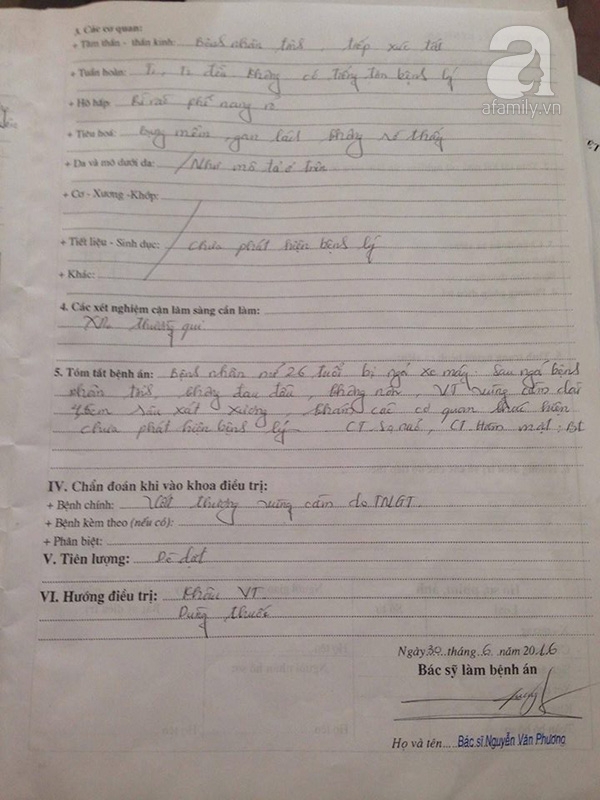 afamily.vn
3. Các cơ quan:
+ Tâm thần - thần kinh: Bệnh nhân tỉnh, tiếp xúc tốt
+ Tuần hoàn: T1, T2 đều không có tiếng tim bệnh lý
+ Hô hấp: Rì rào phế nang rõ
+ Tiêu hoá: Bụng mềm, gan lách không sờ thấy
+ Da và mô dưới da: Như mô tả ở trên
+ Cơ - Xương -Khớp:
+ Tiết liệu - Sinh dục: chưa phát hiện bệnh lý
+ Khác:
4. Các xét nghiệm cận lâm sàng cần làm:
XN thường qui
5. Tóm tắt bệnh án: Bệnh nhân nữ 26 tuổi bị ngã xe máy. Sau ngã bệnh
nhân tỉnh, không đau đầu, không nôn, VT vùng cằm dài
sâu sát xương khám các cơ quan khác hiện
chưa phát hiện bệnh lý CT sọ não, CT Hàm mặt: Bt
IV. Chẩn đoán khi vào khoa điều trị:
+ Bệnh chính: Vết thương vùng cằm do TNGT.
+ Bệnh kèm theo (nếu có):
+ Phân biệt:
V. Tiên lượng: Dè dặt
VI. Hướng điều trị: Khâu VT
Dùng thuốc
Ngày 30 tháng 6 năm 2016
Bác sỹ làm bệnh án
Họ và tên Bác sĩ Nguyễn Văn Phương